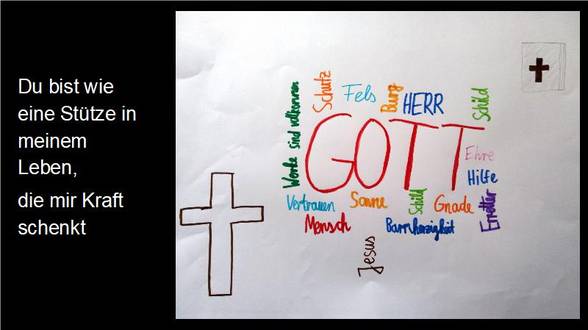 Du bist wie
eine Stütze in
meinem
Leben,
die mir Kraft
schenkt
Werke sind vollkommen
Schutz
Fels
Burg
HERR
Schild
GOTT
Ehre
Hilfe
Vertrauen
Sonne
Schild
Gnade
Erretter
Mensch
Barmherzigkeit
Jesus